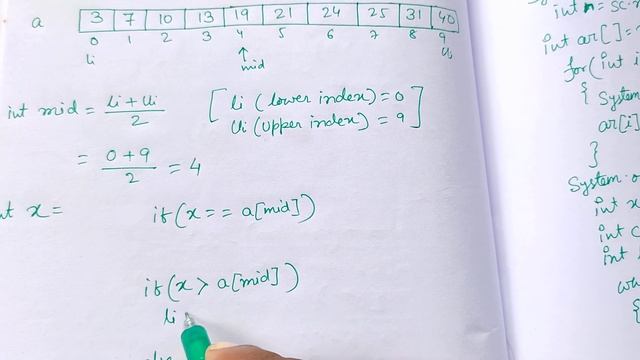 a 3 7 10 13 19 21 24 25 31 40
0 1 2 3 4 5 6 7 8 9
li mid Ui
int mid = li + Ui / 2 [ li (lower index) = 0
Ui (upper index) = 9 ]
= 0+9 / 2 = 4
nt x = if (x == a[mid])
if (x > a[mid])
li
int n = sc.
int ar[]=
for(int i
{ System
ar[i]
}
System.o
int x
int c
int
wh
{